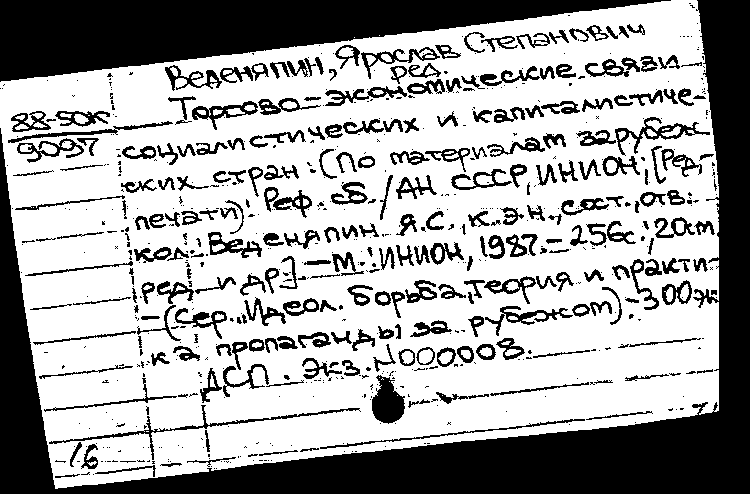 Веденяпин, Ярослав Степанович
ред.
88-50к
9097
Торгово-экономические связи
социалистических и капиталистиче-
ских стран: (По материалам зарубеж
печати): Реф. сб. /АН СССР, ИНИОН; [Ред.-
кол.: Веденяпин Я.С., к.э.н., сост., отв.
ред. и др.] —М.: ИНИОН, 1987.-256с.; 20см.
-(Сер. „Идеол. борьба, теория и практи-
ка пропаганды за рубежом).-300эк
ДСП. Экз. N000008.
16